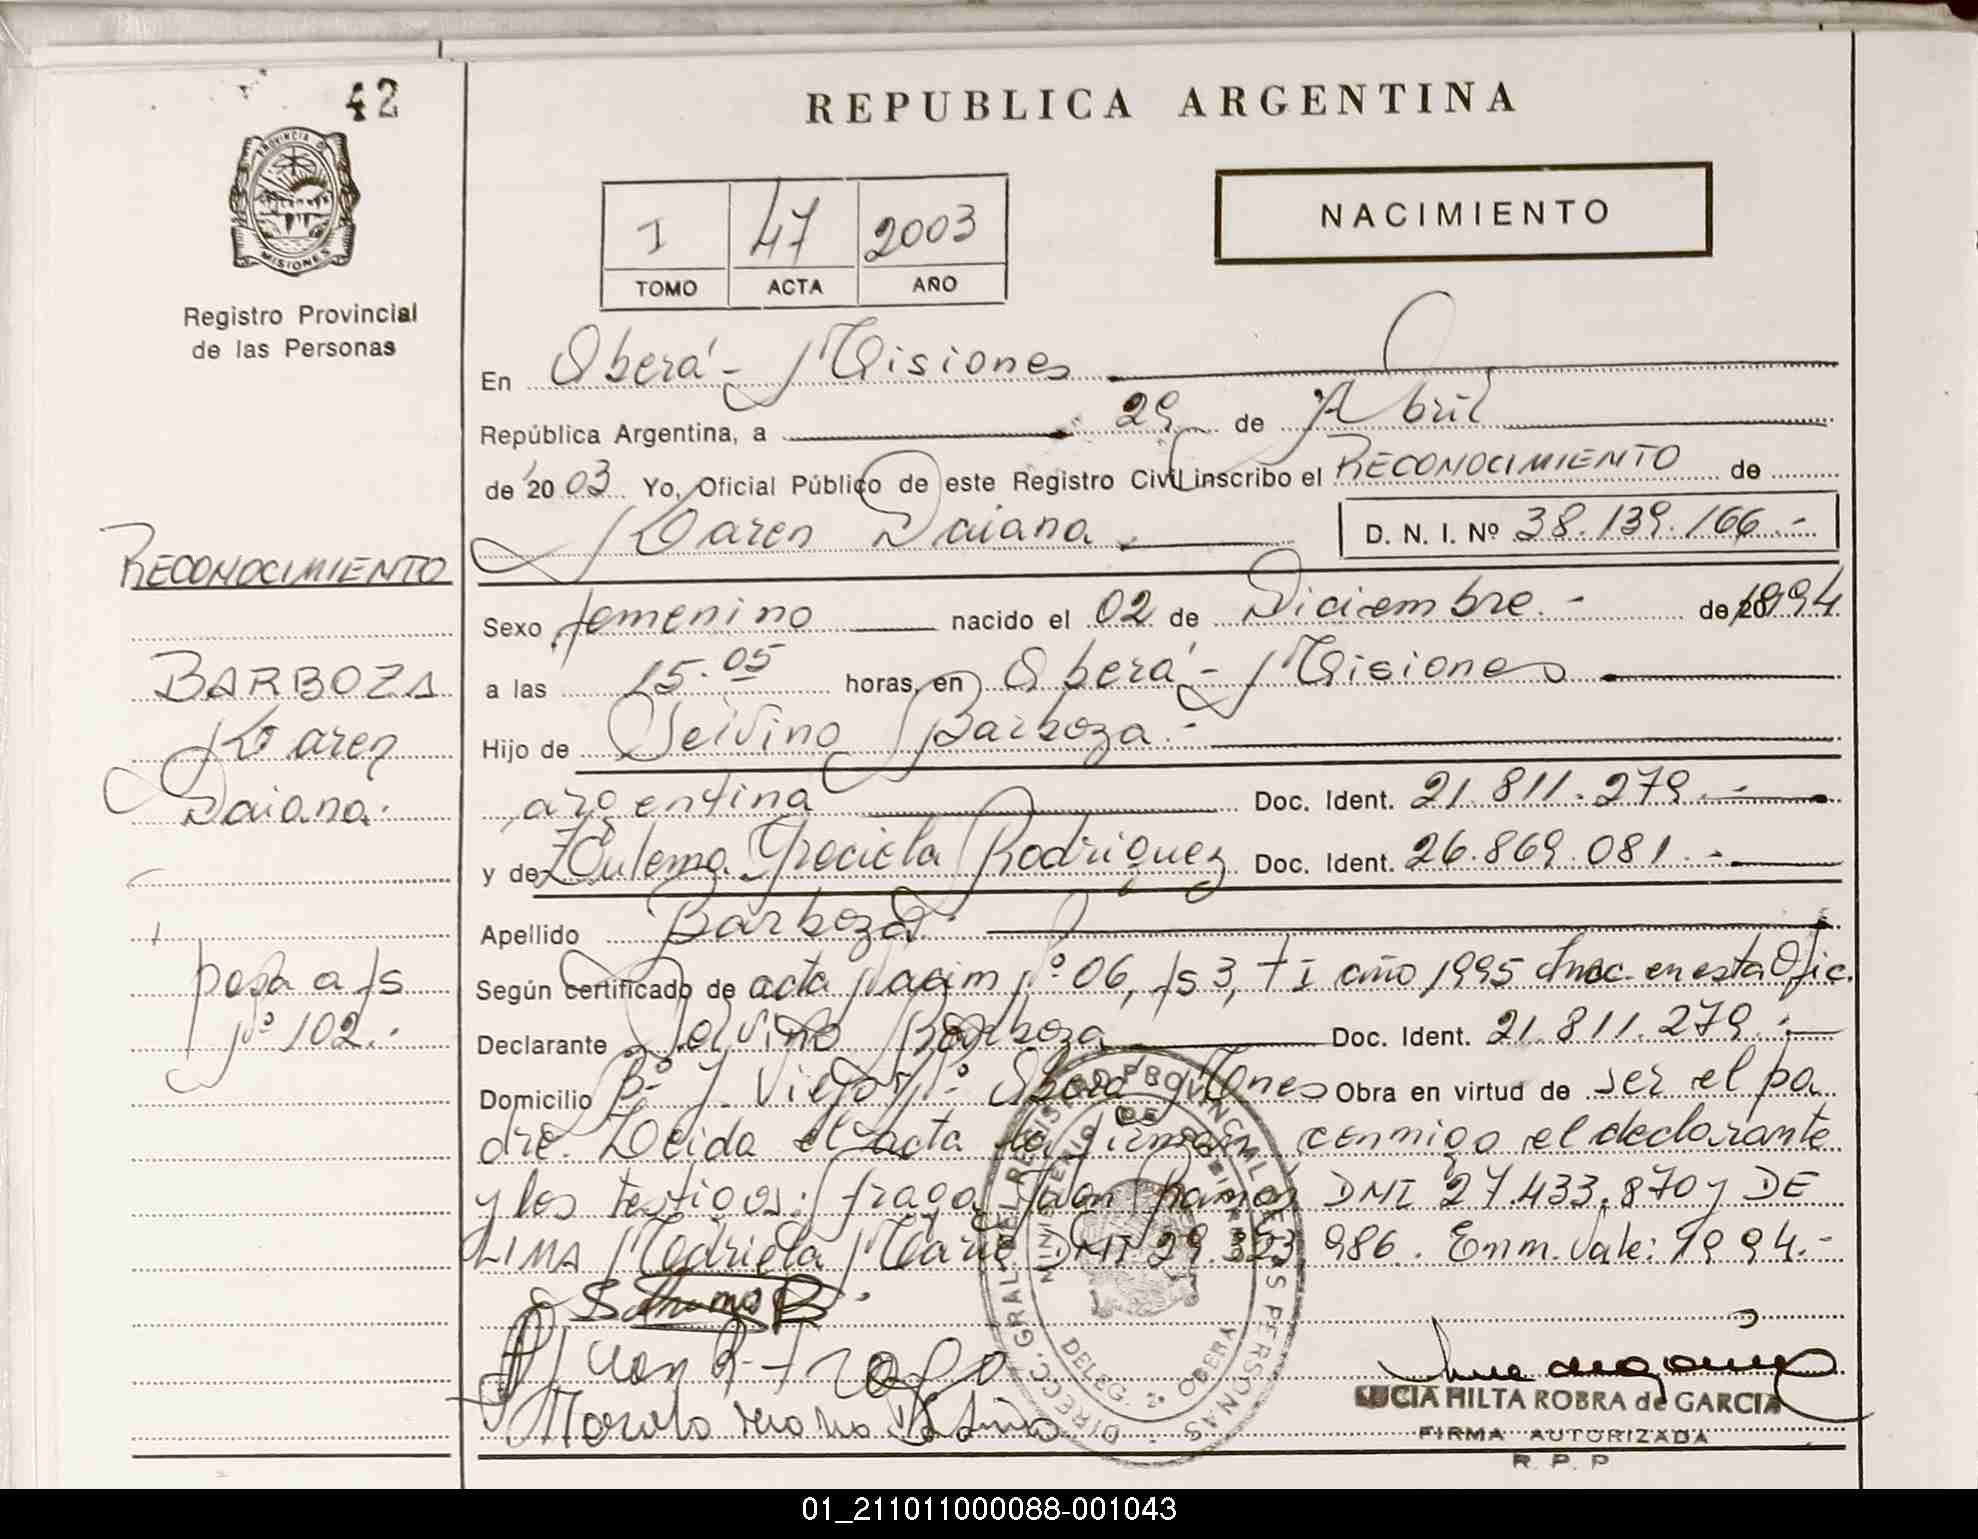 42
PROVINCIA DE
MISIONES
Registro Provincial
de las Personas
REPUBLICA ARGENTINA
NACIMIENTO
I 47 2003
TOMO ACTA AÑO
En Oberá - Misiones
República Argentina, a 29 de Abril
de 2003 Yo, Oficial Público de este Registro Civil inscribo el RECONOCIMIENTO de
Karen Daiana D. N. I. Nº 38.139.166.-
Sexo femenino nacido el 02 de Diciembre.- de 1994
a las 15.05 horas, en Oberá - Misiones
Hijo de Selvino Barboza.-
argentina Doc. Ident. 21.811.279.-
y de Zulema Graciela Rodriguez Doc. Ident. 26.869.081.-
Apellido Barboza.
Según certificado de acta Nacim Nº 06, fs 3, t I año 1995 Insc. en esta Ofic.
Declarante Selvino Barboza Doc. Ident. 21.811.279.-
Domicilio Bº V. Viejo Nº Oberá Mnes Obra en virtud de ser el pa
dre. Leida el acta la firman conmigo el declarante
y los testigos: Fraga Juan Ramon DNI 27.433.870 y DE
LIMA Mariela Maria DNI 29.323.986. Enm. Vale: 1994.-
RECONOCIMIENTO
BARBOZA
Karen
Daiana.
pasa a fs
Nº 102.-
DIRECC. GRAL. DEL REGISTRO PROVINCIAL DE LAS PERSONAS
MINISTERIO DE GOBIERNO
DELEG. 2ª OBERA
Juan R. Fraga
LUCIA HILTA ROBRA de GARCIA
FIRMA AUTORIZADA
R. P. P
01_211011000088-001043